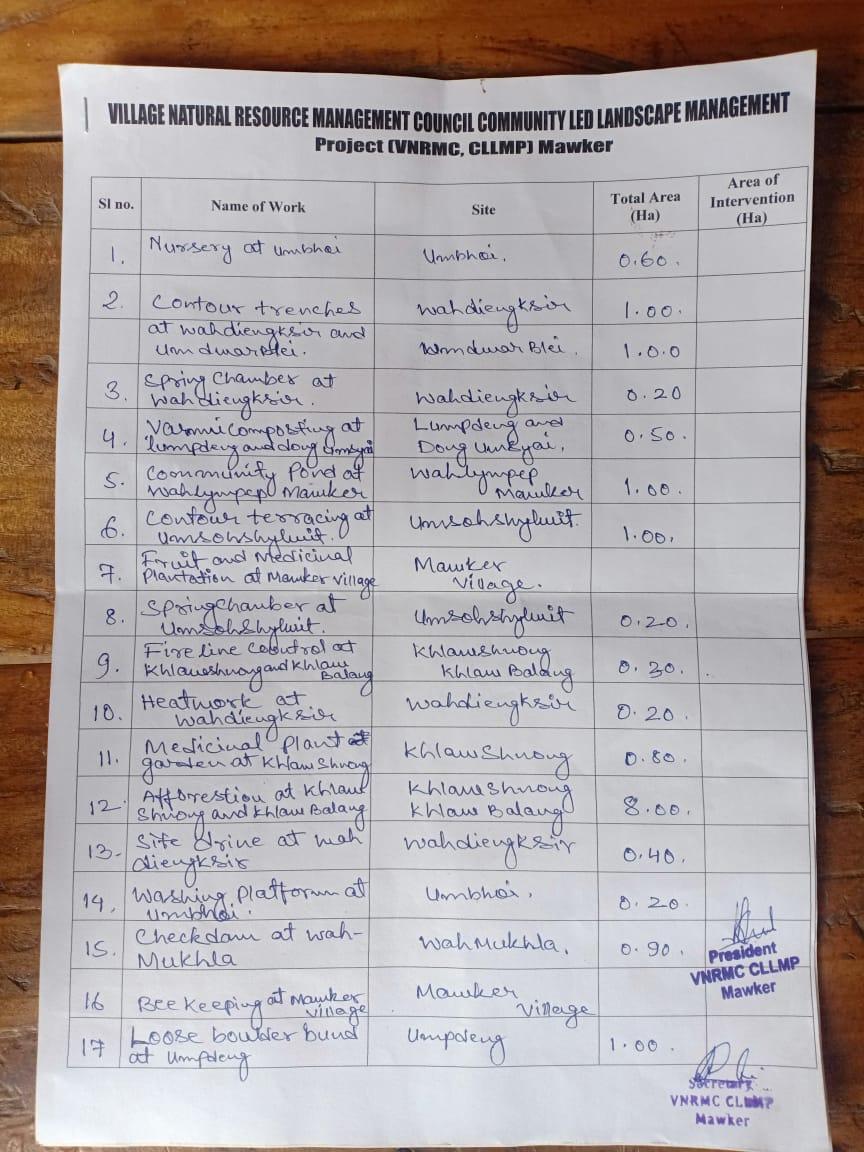 VILLAGE NATURAL RESOURCE MANAGEMENT COUNCIL COMMUNITY LED LANDSCAPE MANAGEMENT
Project (VNRMC, CLLMP) Mawker
Sl no. Name of Work Site Total Area (Ha) Area of Intervention (Ha)
1. Nursery at Umbhoi Umbhoi. 0.60.
2. Contour trenches Wahdiengksir 1.00.
at Wahdiengksir and
UmdwarBlei. UmdwarBlei. 1.0.0
3. Spring Chamber at
Wahdiengksir. Wahdiengksir 0.20
4. Varmicomposting at Lumpdeng and
lumpdeng and dong Umkyai Dong Umkyai. 0.50.
5. Community Pond at Wahlympep
Wahlympep Mawker Mawker 1.00.
6. Contour terracing at Umsohshyluit.
Umsohshyluit. 1.00.
7. Fruit and Medicinal Mawker
Plantation at Mawker Village Village.
8. SpringChamber at Umsohshyluit 0.20.
Umsohshyluit.
9. Fire line control at Khlawshnong
Khlawshnong and Khlaw Balang Khlaw Balang 0.30.
10. Heatwork at Wahdiengksir 0.20.
Wahdiengksir
11. Medicinal Plant
garden at Khlaw Shnong Khlaw Shnong 0.80.
12. Afforestion at Khlaw Khlaw Shnong
Shnong and Khlaw Balang Khlaw Balang 8.00.
13. Site drine at wah Wahdiengksir 0.40.
diengksir
14. Washing Platforum at Umbhoi. 0.20.
Umbhoi.
15. Checkdam at Wah- WahMukhla. 0.90.
Mukhla
16 Bee Keeping at Mawker Mawker
village Village
17 Loose boulder bund Umpdeng 1.00.
at Umpdeng
President
VNRMC CLLMP
Mawker
Secretary
VNRMC CLLMP
Mawker